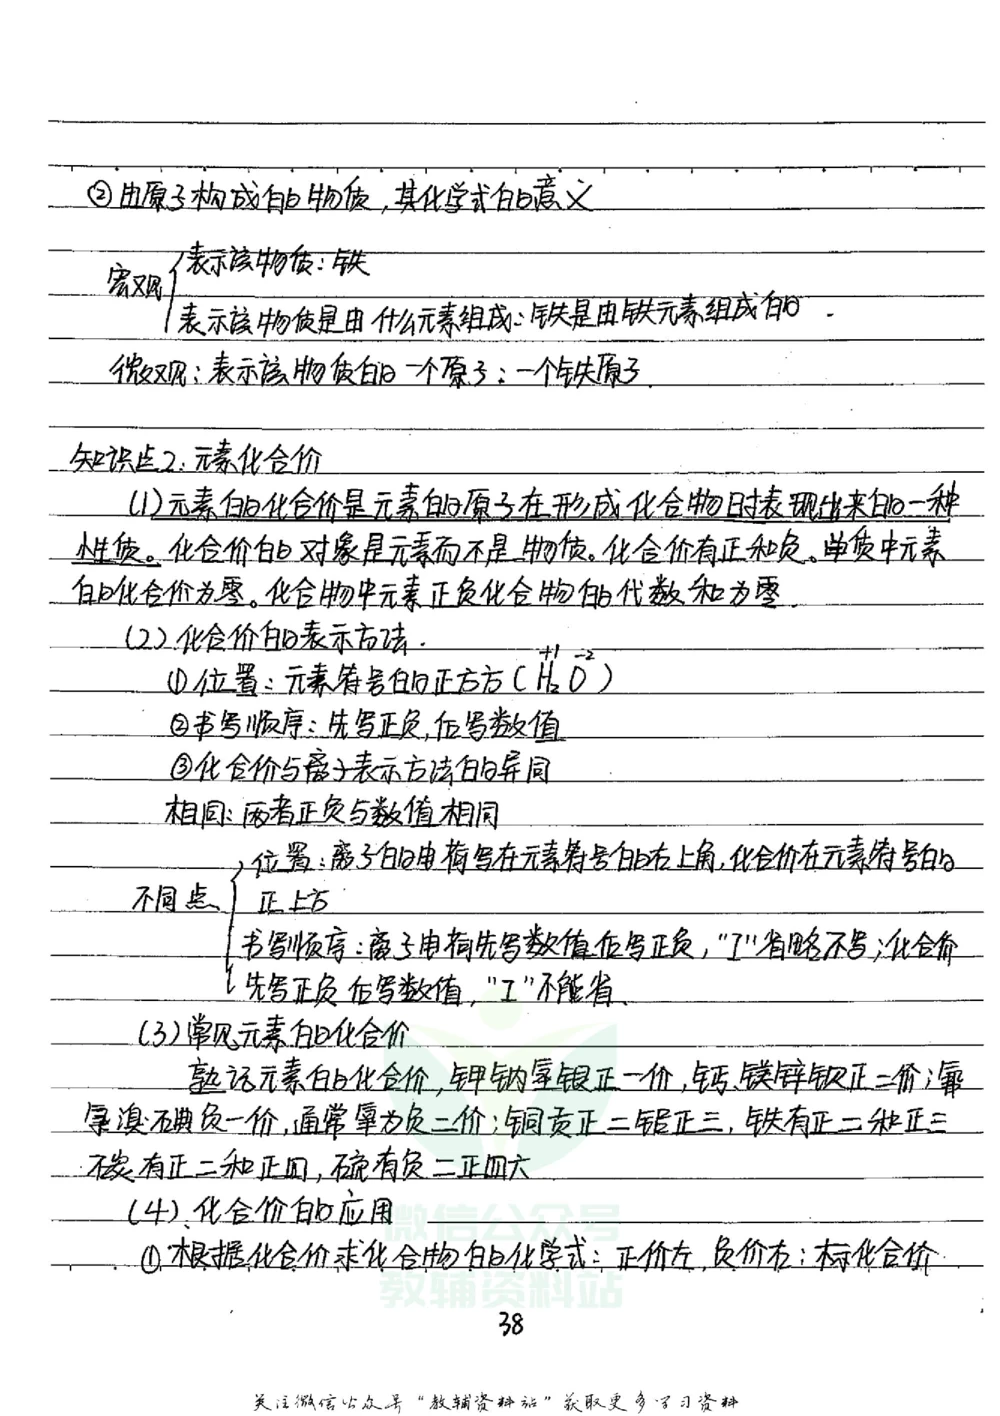 ②由原子构成的物质,其化学式的意义
宏观
表示该物质:铁
表示该物质是由什么元素组成:铁是由铁元素组成的.
微观:表示该物质的一个原子:一个铁原子.
知识点2:元素化合价
(1)元素的化合价是元素的原子在形成化合物时表现出来的一种
性质。化合价的对象是元素而不是物质。化合价有正和负。单质中元素
的化合价为零。化合物中元素正负化合物的代数和为零.
(2)化合价的表示方法.
+1 -2
①位置:元素符号的正方方(H₂O)
②书写顺序:先写正负,后写数值
③化合价与离子表示方法的异同
相同:两者正负与数值相同
不同点
位置:离子的电荷写在元素符号的右上角,化合价在元素符号的
正上方
书写顺序:离子电荷先写数值后写正负,"1"省略不写;化合价
先写正负后写数值,"1"不能省.
(3)常见元素的化合价
熟记元素的化合价,钾钠氢银正一价,钙、镁锌钡正二价;氟
氯溴碘负一价,通常氧为负二价;铜汞正二铝正三,铁有正二和正三
碳有正二和正四,硫有负二正四六
(4)、化合价的应用
①根据化合价求化合物的化学式:正价左,负价右;标化合价
微信公众号
教辅资料站
38
关注微信公众号"教辅资料站"获取更多学习资料